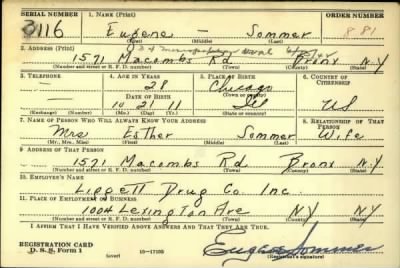 SERIAL NUMBER 1. NAME (Print) ORDER NUMBER
3116 Eugene - Sommer 881
(First) (Middle) (Last)
2. ADDRESS (Print)
1571 Macombs Rd Bronx N.Y
(Number and street or R. F. D. number) (Town) (County) (State)
3. TELEPHONE 4. AGE IN YEARS 5. PLACE OF BIRTH 6. COUNTRY OF CITIZENSHIP
- 28 Chicago
DATE OF BIRTH
10 21 11 Ill US
(Exchange) (Number) (Mo.) (Day) (Yr.) (State or country)
7. NAME OF PERSON WHO WILL ALWAYS KNOW YOUR ADDRESS 8. RELATIONSHIP OF THAT PERSON
Mrs Esther Sommer Wife
(Mr., Mrs., Miss) (First) (Middle) (Last)
9. ADDRESS OF THAT PERSON
1571 Macombs Rd Bronx N.Y
(Number and street or R. F. D. number) (Town) (County) (State)
10. EMPLOYER'S NAME
Liggett Drug Co Inc
11. PLACE OF EMPLOYMENT OR BUSINESS
1004 Lexington Ave NY NY
(Number and street or R. F. D. number) (Town) (County) (State)
I AFFIRM THAT I HAVE VERIFIED ABOVE ANSWERS AND THAT THEY ARE TRUE.
REGISTRATION CARD
D. S. S. Form 1 (over) Eugene Sommer